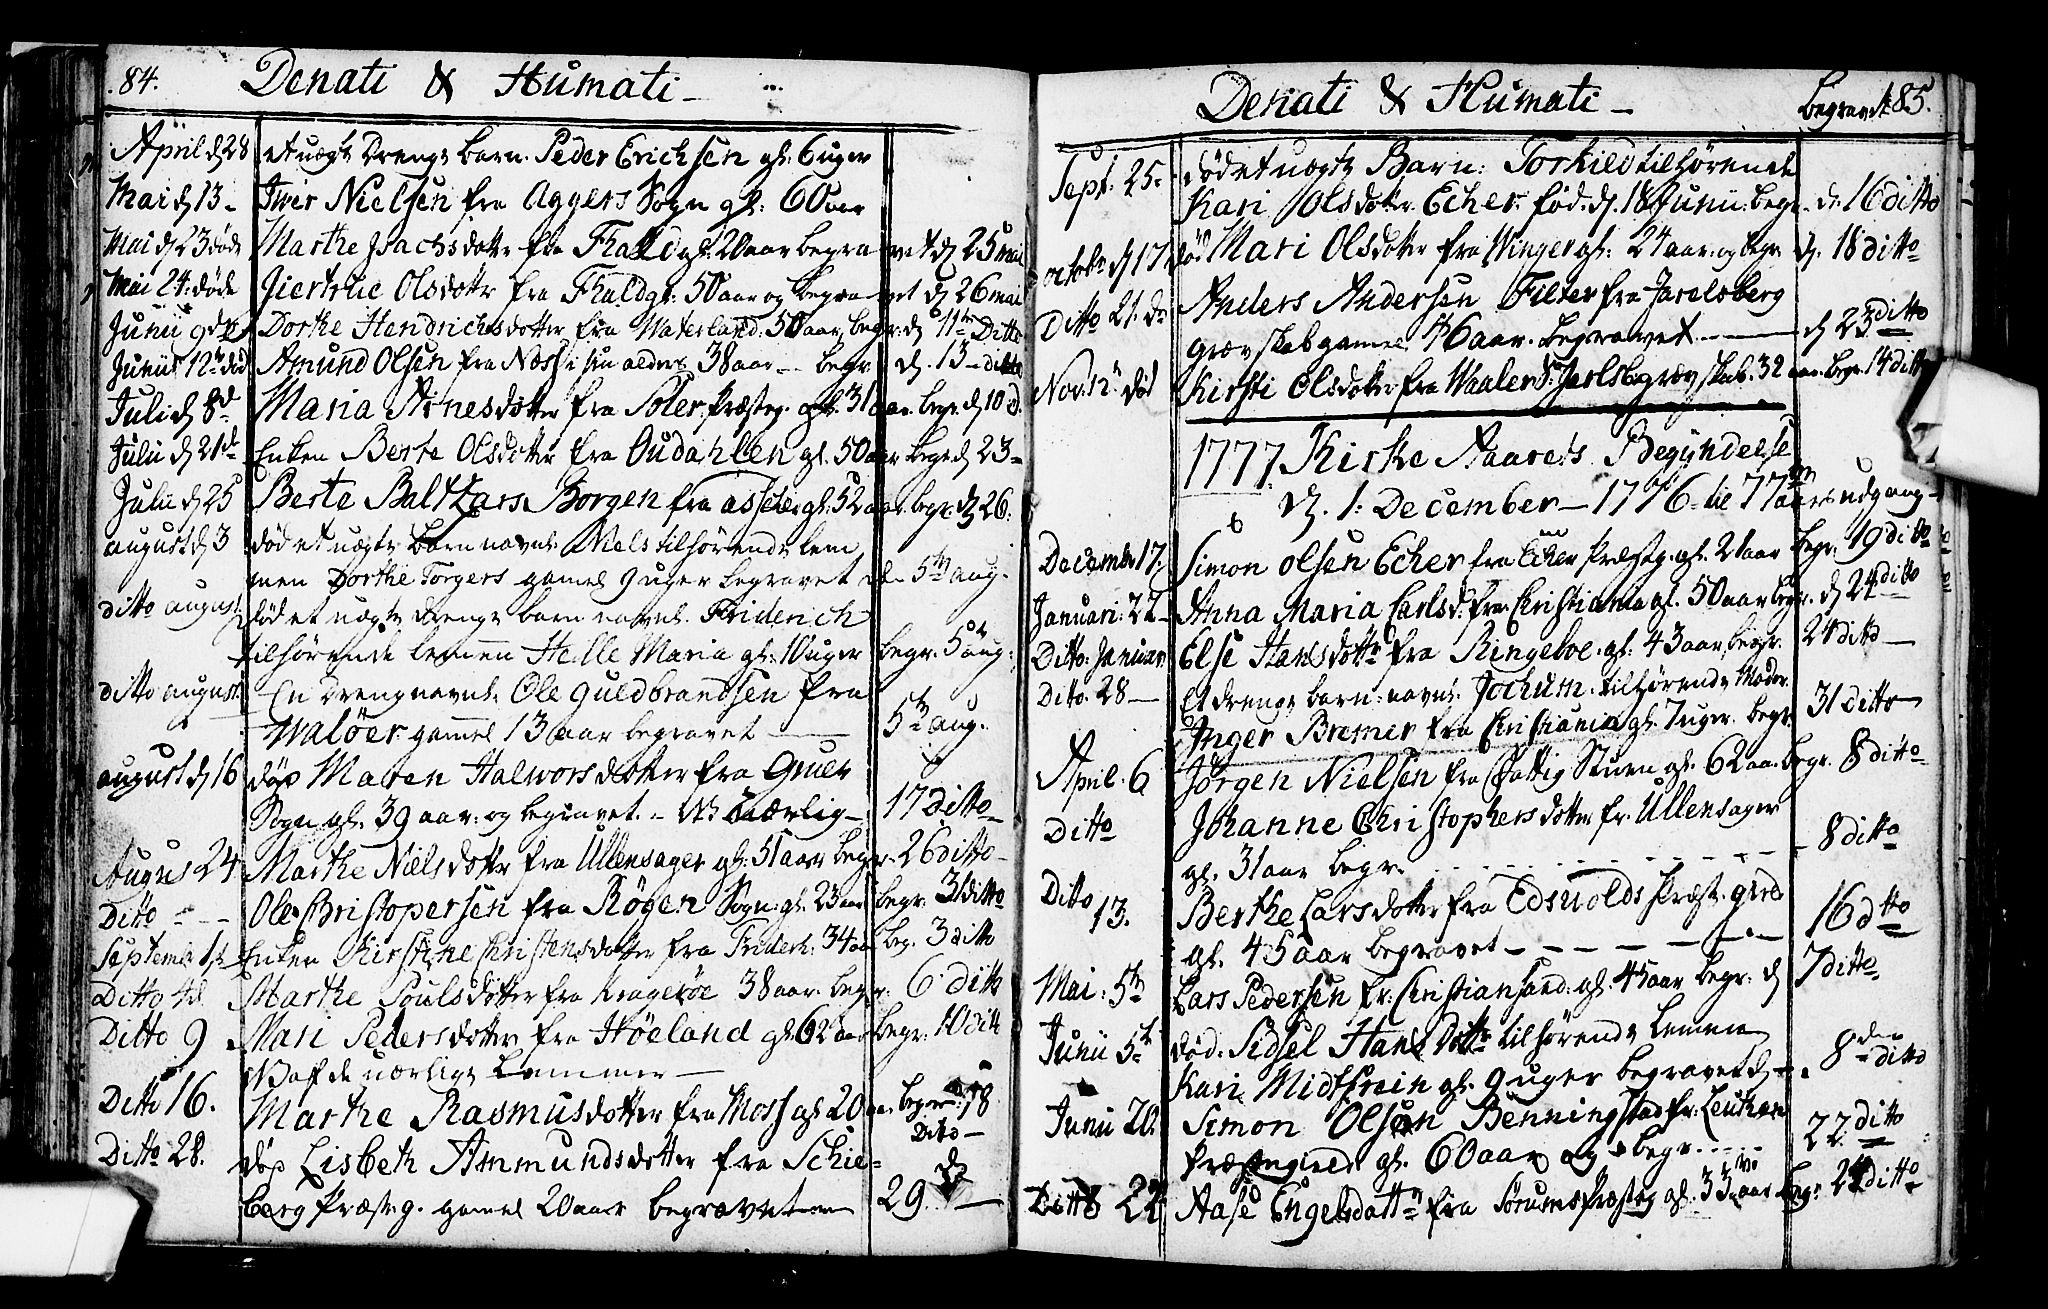 84. Denati & Humati
April d 28 et uægte Drenge barn. Peder Erichsen gl: 6 uger
Mai d 13 - Iwer Nielsen fra Aggers Sogn gl: 60 aar
Mai d 23 døde Marthe Isachsdotter fra Thald gl: 20 aar begravet d 25 mai
Mai 24: døde Giertrue Olsdottr fra Thald gl: 50 aar og begravet d 26 mai
Junii 9 Dorthe Hendrichsdotter fra Waterland. 50 aar, begr: d 11te Ditto
Junii 12te død Amund Olsen fra Næss i sin alders 38 aar -- begr d. 13 - ditto
Juli d 8d Maria Arnesdotter fra Soler præsteg. gl: 31 aar begr. d 10 d.
Julii d 21de Enken Berte Olsdotter fra Oudahlen gl. 50 aar begr d 23 -
Julii d 25 Berte Baltzars Borgen fra asker gl: 52 aar begr. d 26.
august d 3 død et uægte barn navnl. Niels tilhørende lem
men Dorthe Torgers gamel 9 uger begravet d. 5te aug.
ditto august død et uægte drenge barn navnl. Friderich
tilhørende lemen Helle Maria gl: 10 uger begr. 5te aug:
ditto august En Dreng navnl. Ole Guldbrandsen fra
Waløer gammel 13 aar begravet 5te aug.
august d 16 døde Maren Halworsdotter fra Gruer
Sogn gl. 39 aar og begravet. - NB uærlig - 17 Ditto
August 24 Marthe Nielsdotter fra Ullensager gl: 51 aar begr. 26 ditto -
Ditto - Ole Christopersen fra Røgen Sogn gl: 23 aar begr. 31 ditto
Septembr 1ste Enken Kirstine Christensdotter fra Friderh. 34 aar beg. 3 ditto
Ditto 4d Marthe Poulsdotter fra Kragerøe 38 aar. begr. 6 ditto
Ditto 9 Mari Pedersdotter fra Høeland gl: 62 aar begr. 10 ditto
NB af de uærlige Lemmer -
Ditto 16. Marthe Rasmusdotter fra Moss gl 20 aar begr: 18
Ditto -
Ditto 28. døde Lisbeth Ammundsdotter fra Schie-
berg Præsteg. gamel 20 aar begravet 29
Denati & Humati - Begravet 85.
Sept. 25. død et uægte Barn: Torkild tilhørende
Kari Olsdotter Echer fød. d. 18 Junii begr. d: 16 ditto
octobr d 17 død Mari Olsdotter fra Winger gl: 24 aar og begr. d. 18 ditto
Ditto 21. do Anders Andersen Filter fra Jarelsberg
grævskab gamel 46 aar. begravet d 23 ditto
Nov. 12 død Kirsti Olsdotter fra Waaler S. Jarlsb. grævskab. 32 aar begr. 14 ditto
1777. Kirke Aarets Begÿndelse
d. 1. December - 1776 - til 77 aars udgang -
December 17. Simon Olsen Echer fra Echer Præsteg. gl. 21 aar begr. 19 ditto
Januari: 22 - Anna Maria Carlsd. fra Christiania gl. 50 aar begr. d 24 ditto
Ditto: Januar Else Hansdotter fra Ringeboe. gl: 43 aar begr. 24 ditto -
Ditto. 28 - Et drenge barn: navnl. Jochum. tilhørende Moder
Inger Bremer fra Christiania gl. 7 uger. begr. 31 Ditto
April. 6 Jørgen Nielsen fra Fattig Stuen gl. 62 aar begr. 8 ditto -
Ditto Johanne Christophersdotter fr. Ullensager
gl. 31 aar begr. - 8 ditto
Ditto 13. Berthe Larsdotter fra Edsvolds Præst. gield
gl. 45 aar begravet - 16 dtto
Mai: 5te Lars Pedersen fr. Christiansand. gl. 45 aar begr: d 7 ditto.
Junii 5te død. Sidsel Hans Dotter tilhørende lemen
Kari Midtskoin gl. 9 uger begravet d - 8den ditto
Junii 20. Simon Olsen Benningstad fr. Leuthen
Præstegield. gl. 60 aar og begr. 22 ditto
Ditto 22 Aase Engelsdotter fra Sørums Præsteg gl. 33 aar begr. 24 ditto